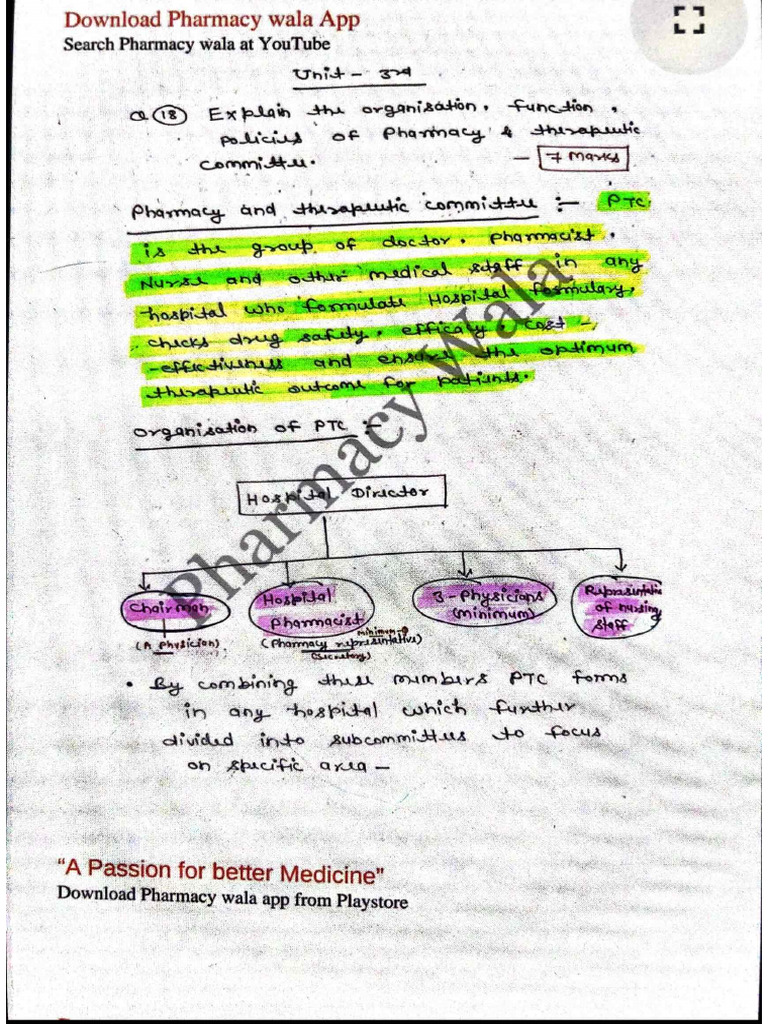 Download Pharmacy wala App
Search Pharmacy wala at YouTube
Unit - 3rd
Q (18) Explain the organisation, function,
policies of Pharmacy & therapeutic
committee. - 7 Marks
Pharmacy and therapeutic committee :- PTC
is the group of doctor, pharmacist,
Nurse and other medical staff in any
hospital who formulate Hospital formulary,
checks drug safety, efficacy, cost -
-effectiveness and ensure the optimum
therapeutic outcome for patients.
Organisation of PTC :-
Hospital Director
Chairman
(A physician)
Hospital
Pharmacist
minimum
(Pharmacy representative)
(Secretary)
3-Physicians
(minimum)
Representative
of nursing
staff
• By combining these members PTC forms
in any hospital which further
divided into subcommittees to focus
on specific area -
Pharmacy Wala
"A Passion for better Medicine"
Download Pharmacy wala app from Playstore